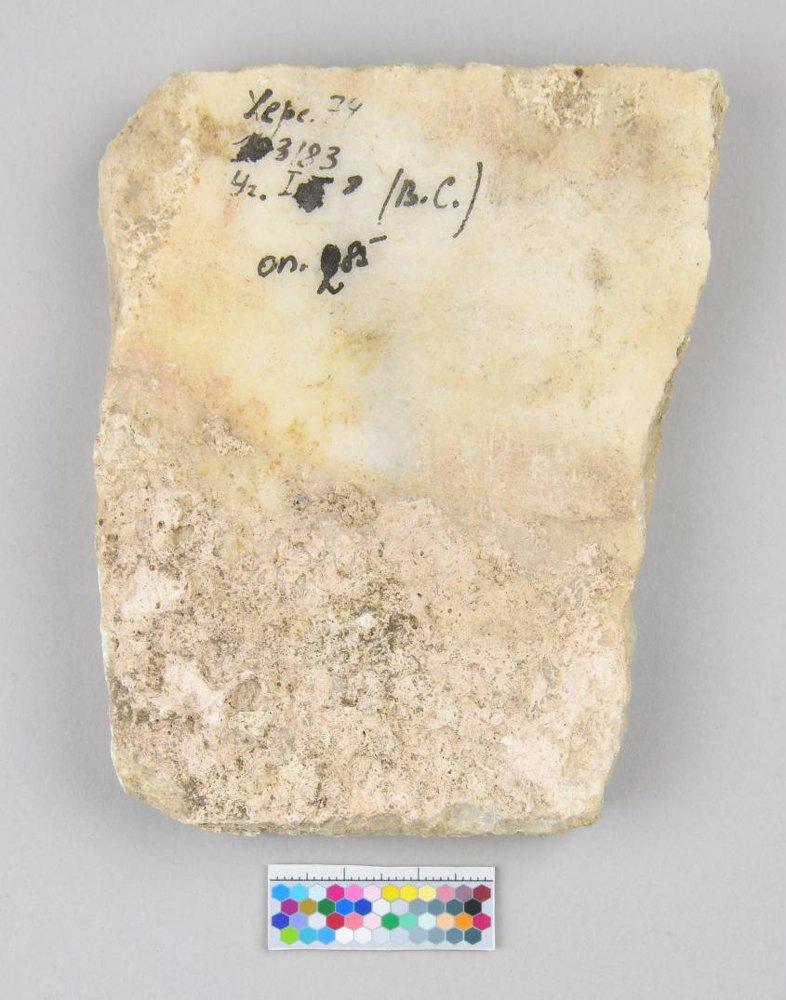 Херс. 74
3/83
Уг. I (В.С.)
оп. 285